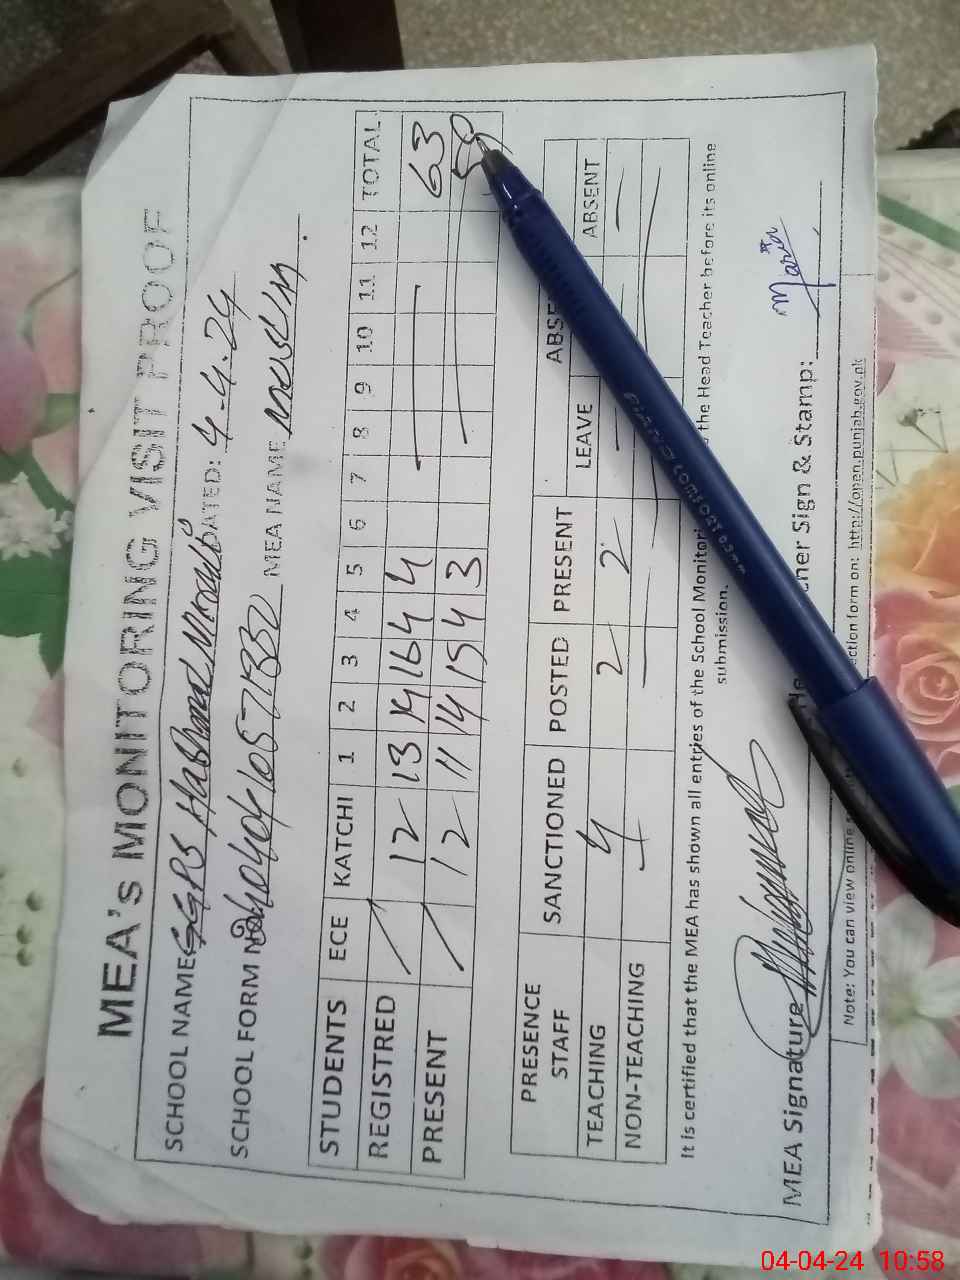 MEA's MONITORING VISIT PROOF
SCHOOL NAME GGPS DATED: 4.4.24
SCHOOL FORM MEA NAME
STUDENTS ECE KATCHI 1 2 3 4 5 6 7 8 9 10 11 12 TOTAL
REGISTRED 12 13 14 16 4 4 63
PRESENT 12 11 14 15 4 3 59
PRESENCE STAFF SANCTIONED POSTED PRESENT LEAVE ABSENT
TEACHING 4 2 2
NON-TEACHING
It is certified that the MEA has shown all entries of the School Monitori the Head Teacher before its online
submission.
MEA Signature He cher Sign & Stamp: Maria
Note: You can view online ection form on: http://open.punjab.gov.pk
PIANO COMFORT 0.9mm
04-04-24 10:58